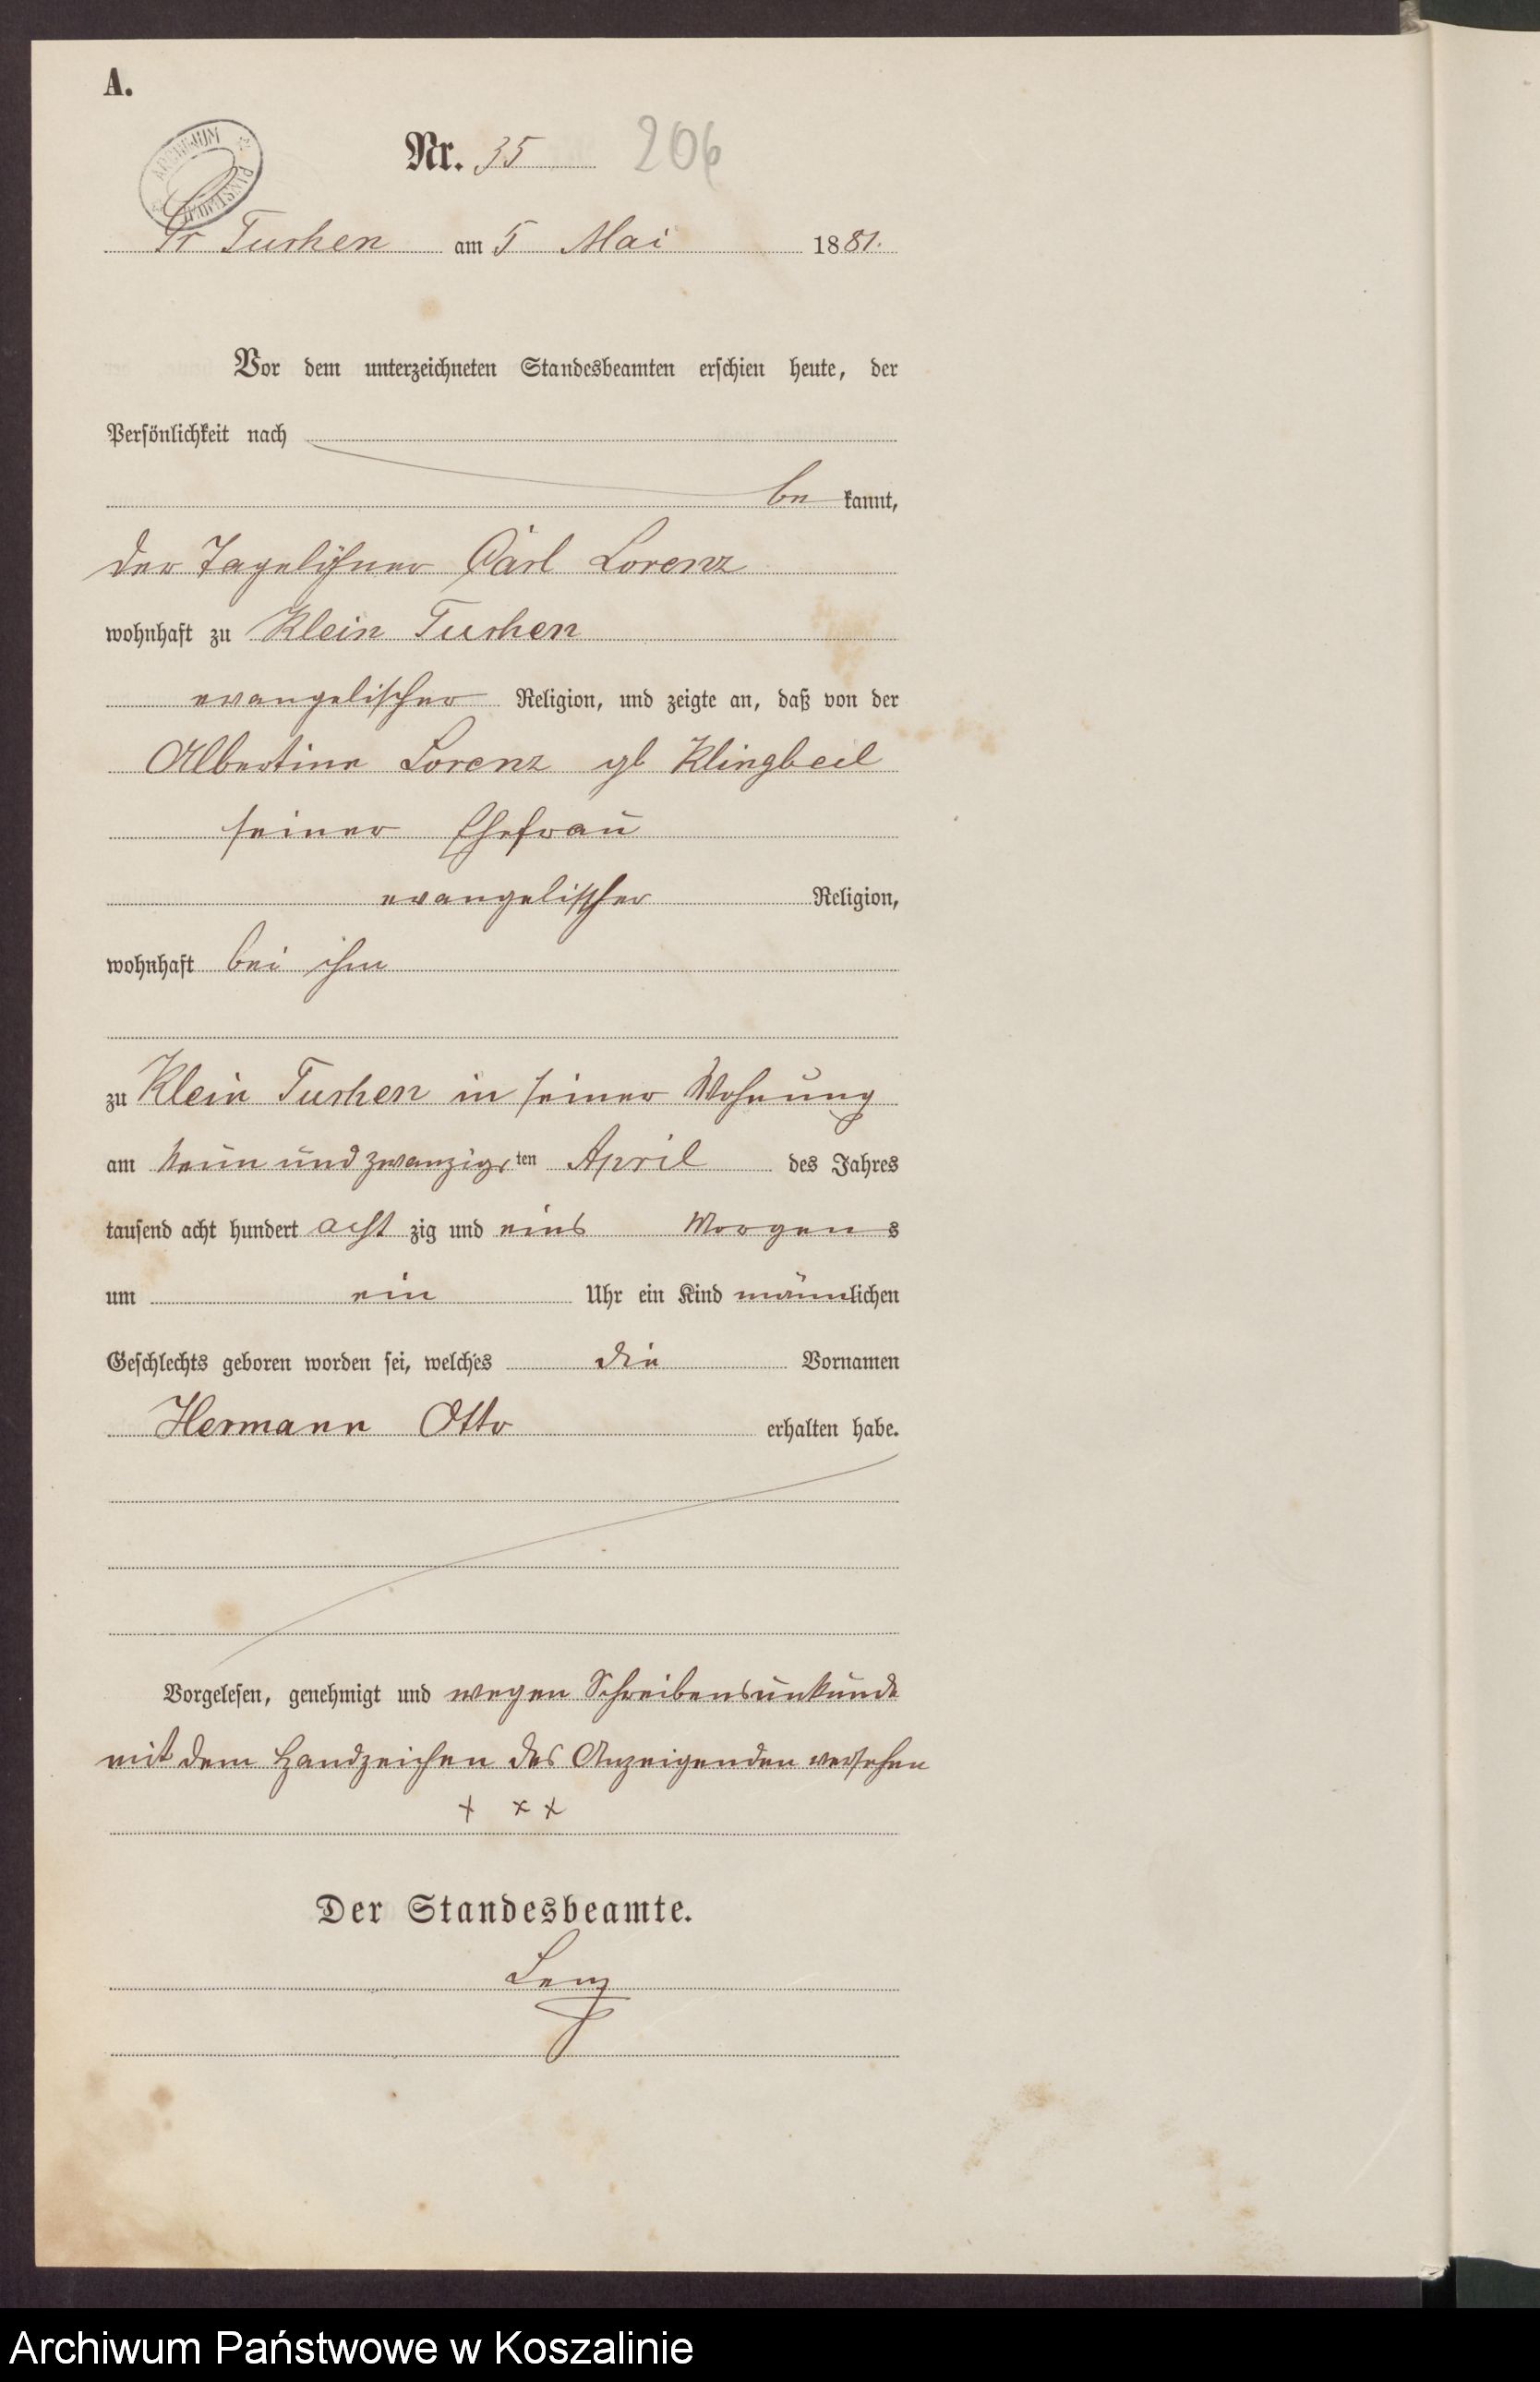 A.
Nr. 35 206
ARCHIWUM PAŃSTWOWE
Gr Tuchen am 5 Mai 1881.
Vor dem unterzeichneten Standesbeamten erschien heute, der
Persönlichkeit nach
be kannt,
der Tagelöhner Carl Lorenz
wohnhaft zu Klein Tuchen
evangelischer Religion, und zeigte an, daß von der
Albertine Lorenz gb Klingbeil
seiner Ehefrau
evangelischer Religion,
wohnhaft bei ihm
zu Klein Tuchen in seiner Wohnung
am neun und zwanzigsten April des Jahres
tausend acht hundert acht zig und eins Morgens
um ein Uhr ein Kind männlichen
Geschlechts geboren worden sei, welches die Vornamen
Hermann Otto erhalten habe.
Vorgelesen, genehmigt und wegen Schreibensunkunde
mit dem Handzeichen des Anzeigenden versehen
+ x x
Der Standesbeamte.
Lenz
Archiwum Państwowe w Koszalinie